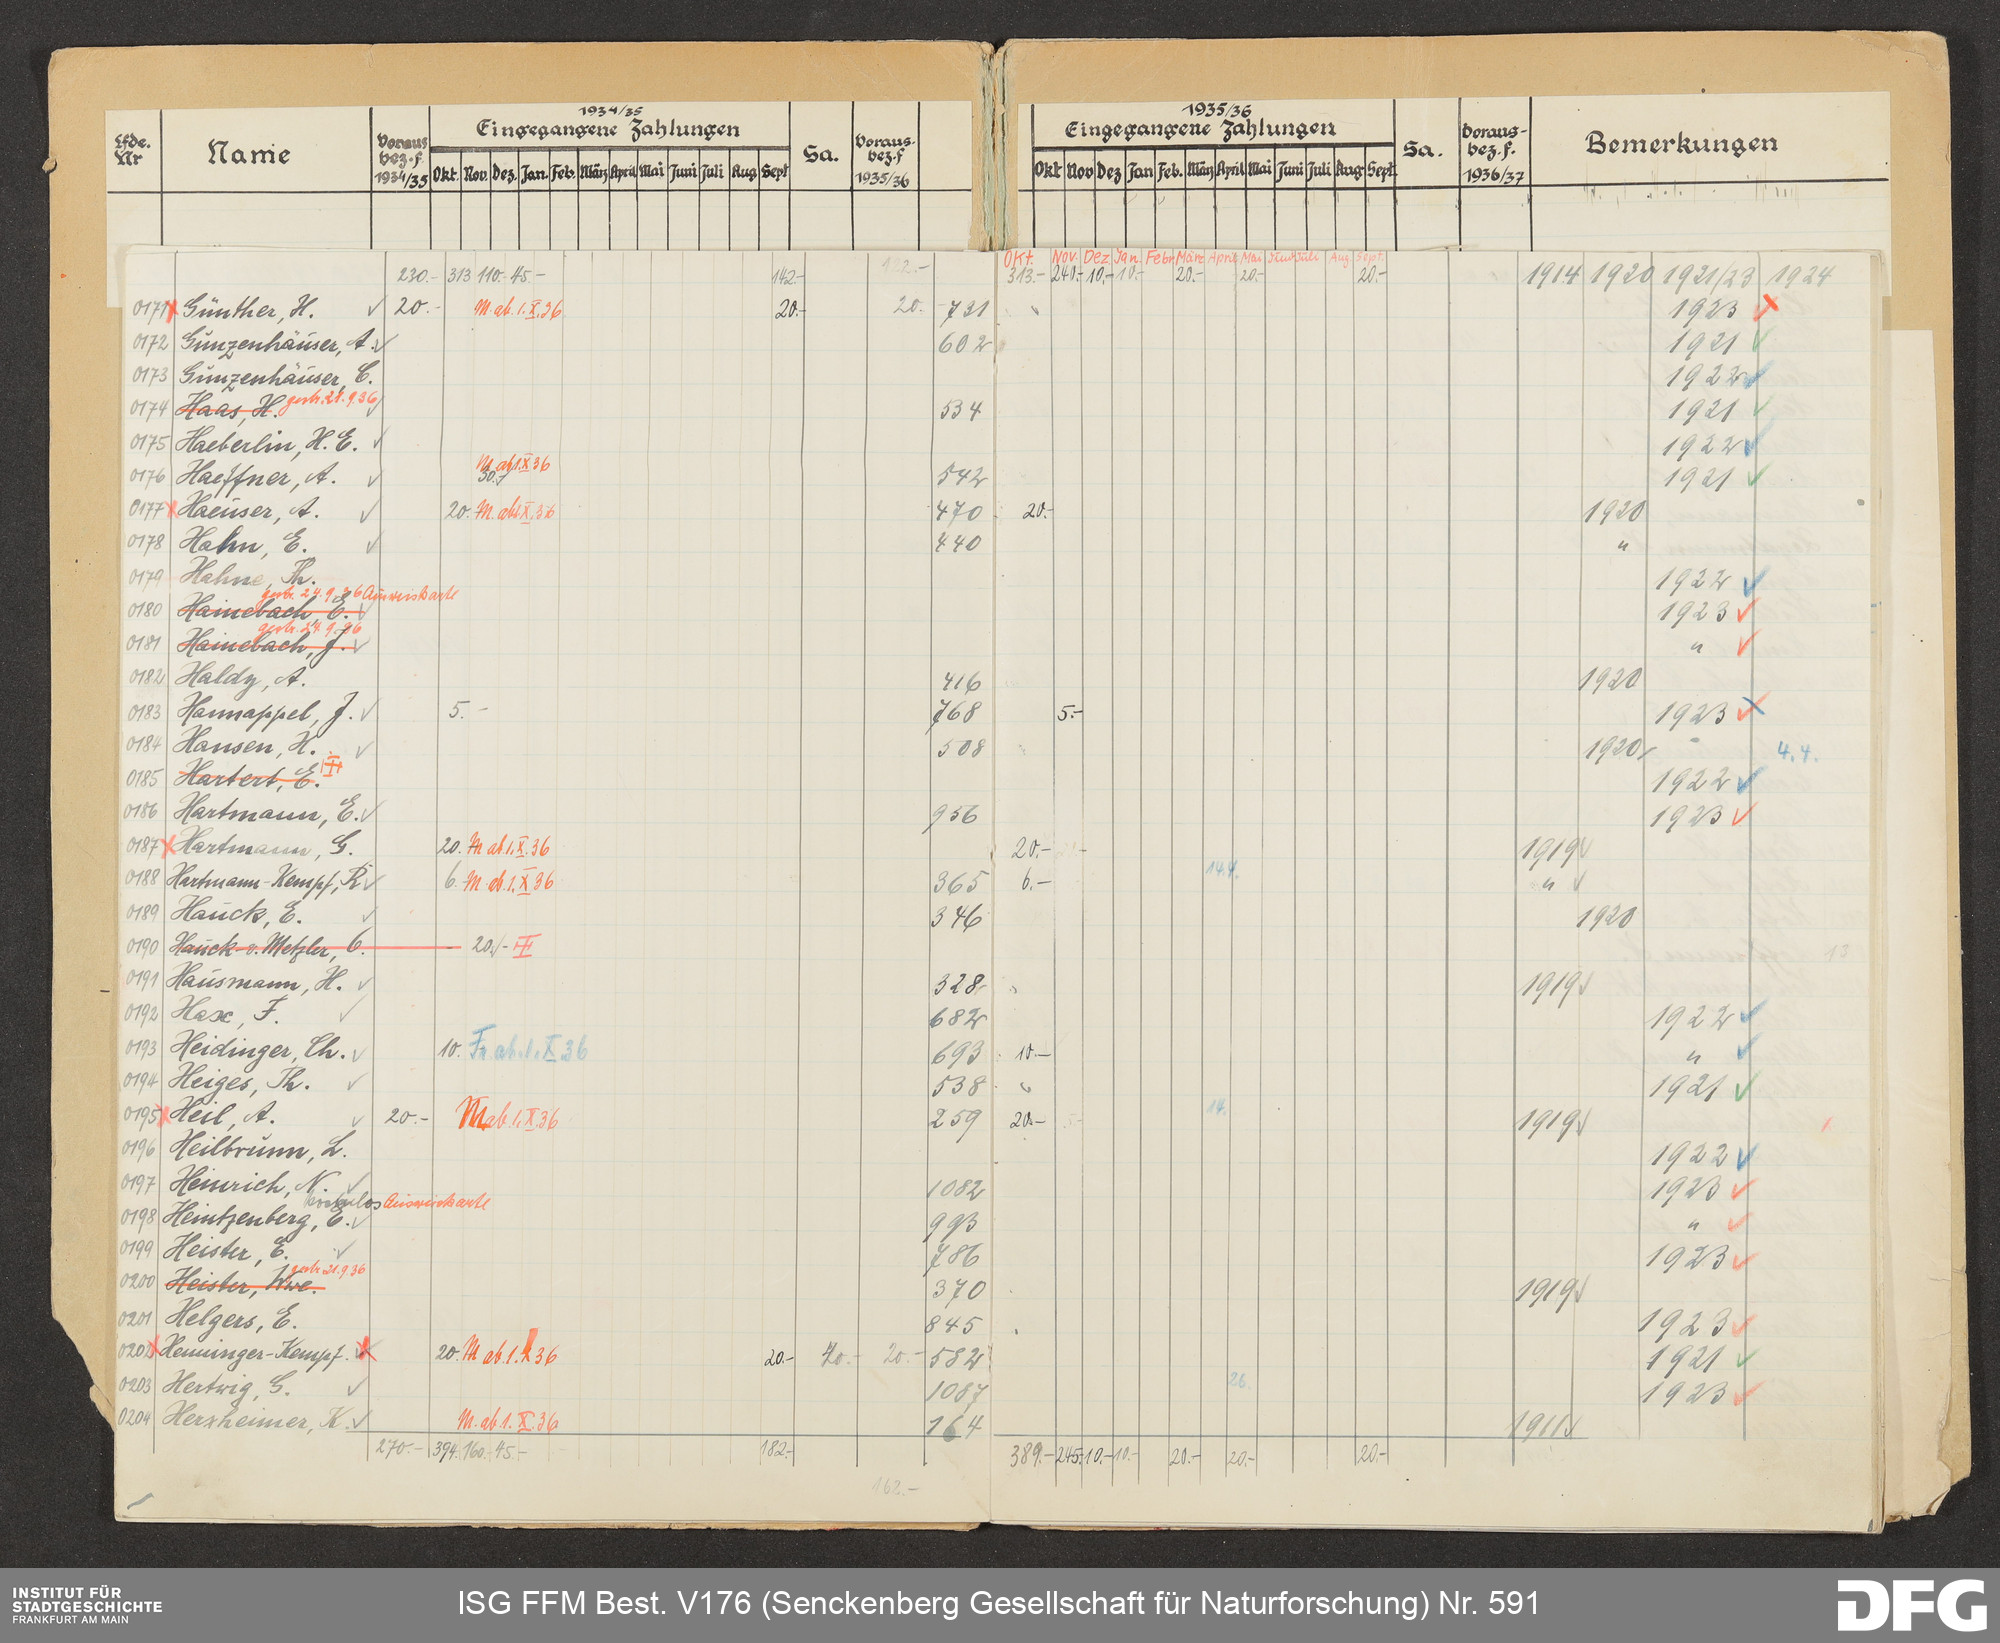 Lfde. Nr Name Voraus bez. f. 1934/35 1934/35 Eingegangene Zahlungen Sa. Voraus- bez. f 1935/36 1935/36 Eingegangene Zahlungen Sa. Voraus- bez. f. 1936/37 Bemerkungen
Okt. Nov. Dez. Jan. Feb. März April Mai Juni Juli Aug Sept Okt Nov Dez Jan Feb. März April Mai Juni Juli Aug Sept.
Okt. Nov. Dez Jan. Febr März April Mai Juni Juli Aug. Sept.
230.- 313 110.- 45.- 142.- 313.- 240.- 10.- 10.- 20.- 20.- 20.- 1914 1920 1921/23 1924
0171 Günther, H. 20.- M. ab. 1. X. 36 20.- 20. 731 1923
0172 Gunzenhäuser, A. 602 1921
0173 Gunzenhäuser, C. 1922
0174 Haas, H. gestr. 21.9.36 534 1921
0175 Haeberlin, H. E. 1922
0176 Haeffner, A. M. ab 1. X 36 30.- 542 1921
0177 Haeuser, A. 20. M. ab 1. X. 36 470 20.- 1920
0178 Hahn, E. 440 "
0179 Hahne, Th. 1922
0180 Hainebach E. gestr. 24.9.36 Ausweiskarte 1923
0181 Hainebach, J. gestr. 24.9.36 "
0182 Haldy, A. 416 1920
0183 Hannappel, J. 5.- 768 5.- 1923
0184 Hansen, H. 508 1920 4.4.
0185 Hartert, E. 1922
0186 Hartmann, E. 956 1923
0187 Hartmann, G. 20. M ab. 1. X. 36 20.- 1919
0188 Hartmann-Kempf, R 6. M. ab. 1. X 36 365 6.- 14.4. "
0189 Hauck, E. 346 1920
0190 Hauck-v. Metzler, C. 20.-
0191 Hausmann, H. 328 1919
0192 Hax, F. 682 1922
0193 Heidinger, Ch. 10. Fr. ab. 1. X 36 693 10.- "
0194 Heiges, Th. 538 1921
0195 Heil, A. 20.- M ab. 1. X. 36 259 20.- 14. 1919
0196 Heilbrunn, L. 1922
0197 Heinrich, N. 1082 1923
0198 Heintzenberg, E. kostenlos Ausweiskarte 993 "
0199 Heister, E. 786 1923
0200 Heister, Wwe. gestr. 21.9.36 370 1919
0201 Helgers, E. 845 1923
0202 Henninger-Kempf. 20. M ab. 1. X 36 20.- 20.- 582 1921
0203 Hertwig, G. 1087 26. 1923
0204 Herxheimer, K. M. ab. 1. X. 36 164 1911
270.- 394. 160.- 45.- 182.- 389.- 245.- 10.- 10.- 20.- 20.- 20.-
162.-
INSTITUT FÜR
STADTGESCHICHTE
FRANKFURT AM MAIN
ISG FFM Best. V176 (Senckenberg Gesellschaft für Naturforschung) Nr. 591
DFG